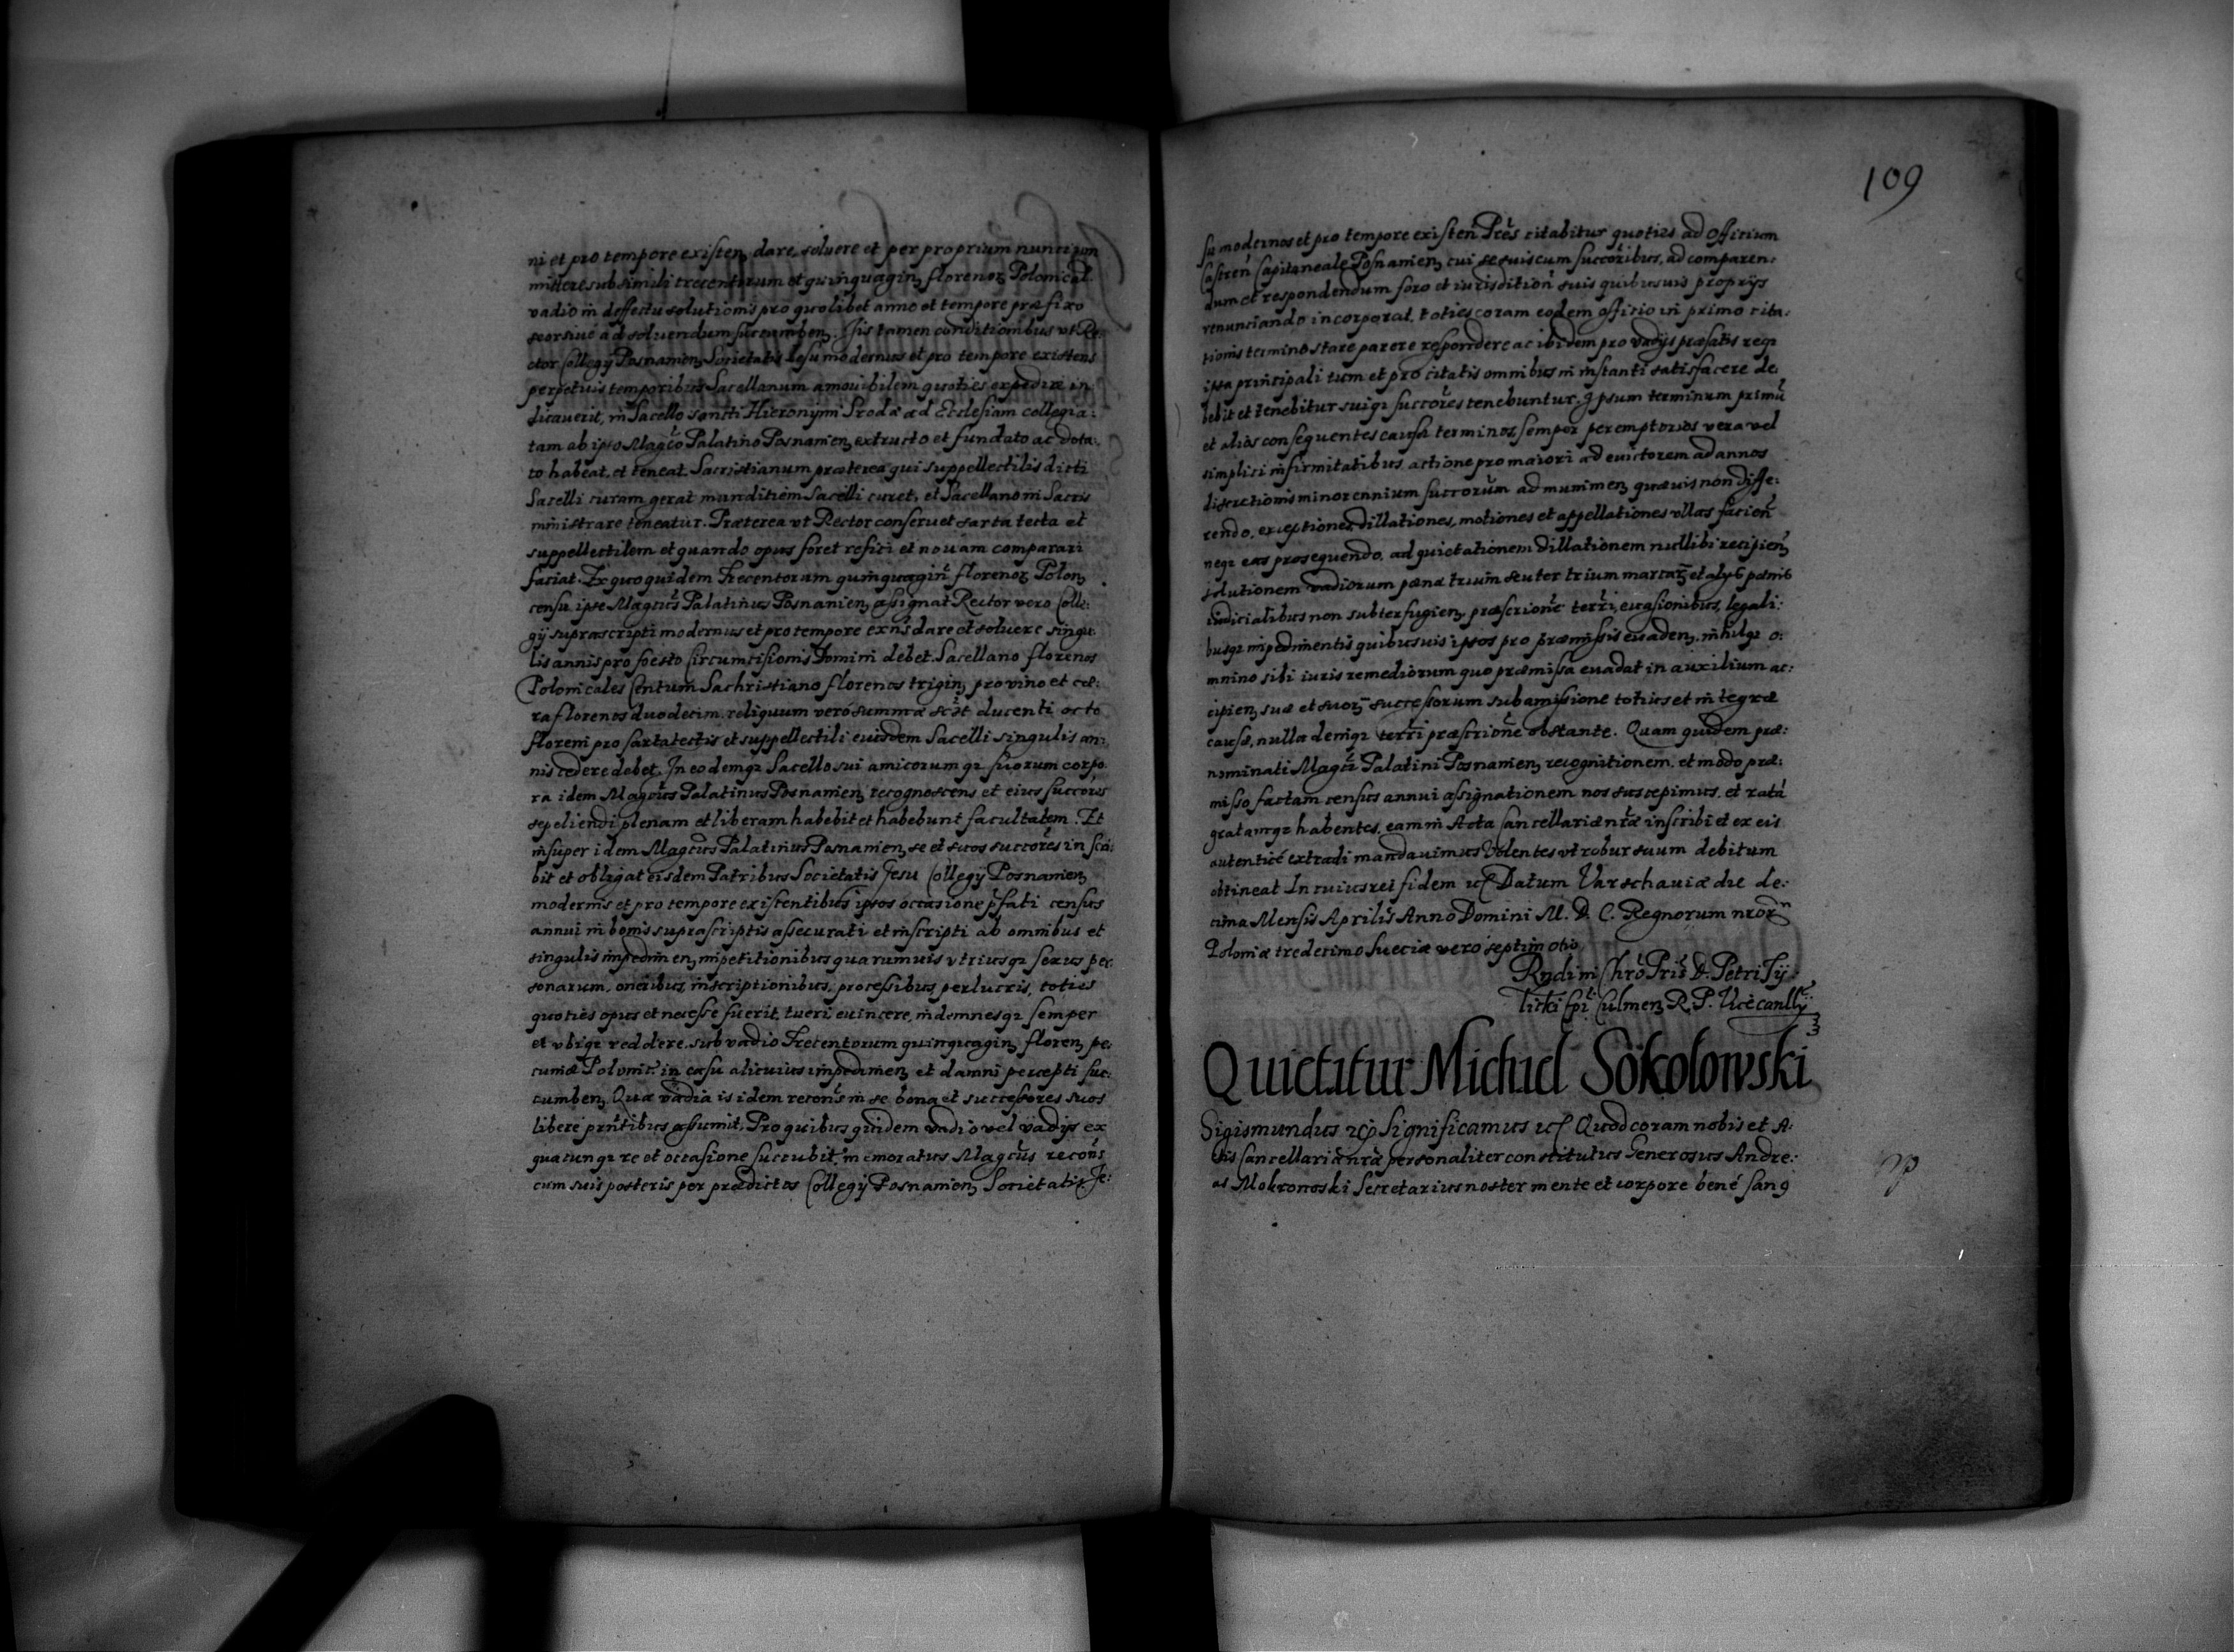 ni et pro tempore existen̄ dare, soluere et per proprium nuncium
mittere sub simili trecentorum et quinquagin̄ florenoꝝ Polonical
vadio in deffectu solutionis pro quolibet anno et tempore præfixo
seorsiue ad soluendum succumben̄. Jis tamen conditionibus vt Re:
ctor Collegÿ Posnanien̄ Societatis Iesu modernus et pro tempore existens
perpetuis temporibus Sacellanum amouibilem quoties expedire in:
dicauerit, in Sacello sancti Hieronÿmi Srodæ ad Ecclesiam collegia:
tam ab ipso Magc̄o Palatino Posnanien̄ extructo et fundato ac dota:
to habeat, et teneat. Sacristianum præterea qui suppellectilis dicti
Sacelli curam gerat munditiem Sacelli curet, et Sacellano in Sacris
ministrare teneatur. Præterea vt Rector conseruet sarta tecta et
suppellectilem et quando opus foret refici et nouam comparari
faciat. Ex quo quidem Trecentorum quinquagin̄ florenoꝝ Polon̄
censu ipse Magcūs Palatinus Posnanien̄ assignat Rector vero Colle:
gÿ suprascripti modernus et pro tempore exn̄s dare et soluere singu:
lis annis pro foesto Circumcisionis Domini debet. Sacellano florenos
Polonicales Centum Sachristiano florenos trigin̄, pro vino et cæ:
ra florenos duodecim, reliquum veró summæ scꝫt ducenti octo
floreni pro sartatectis et suppellectili eiusdem Sacelli singulis an:
nis cedere debet. In eodemqꝫ Sacello sui amicorumqꝫ suorum corpo
ra idem Magcūs Palatinus Posnanien̄ recognoscens et eius succōres
sepeliendi plenam et liberam habebit et habebunt facultatem. Et
insuper idem Magcūs Palatinus Posnanien̄ se et suos succōres inscri:
bit et obligat eisdem Patribus Societatis Jesu Collegÿ Posnanien̄
modernis et pro tempore existentibus ipsos occasione p̄fati census
annui in bonis suprascriptis assecurati et inscripti ab omnibus et
singulis impedimen̄, impetitionibus quarumuis vtriusqꝫ sexus per:
sonarum, oneribus, inscriptionibus, processibus, perlucris, toties
quoties opus et necesse fuerit, tueri, euincere, indemnesqꝫ semper
et vbiqꝫ reddere, sub vadio Trecentorum quinquagin̄ floren̄ pe:
cuniæ Polonic̄ in casu alicuius impedimen̄ et damni percepti suc:
cumben̄. Quæ vadia is idem recon̄s in se bona et successores suos
libere prn̄tibus assumit. Pro quibus quidem vadio vel vadÿs ex
quacunqꝫ re et occasione succubit, memoratus Magcūs recon̄s
cum suis posteris per prædictos Collegÿ Posnanien̄ Societatis Je:
109
su modernos et pro tempore existen̄ Prēs citabitur quoties ad Officium
Castren̄ Capitaneale Posnanien̄ cui se suis cum succōribus, ad comparen:
dum et respondendum foro et iurisdition̄ suis quibusuis proprÿs
renunciando incorporat, toties coram eodem officio in primo cita:
tionis termino stare parere respondere ac ibidem pro vadÿs præfatis reqꝫ
ipsa principali tum et pro citatis omnibus in instanti satisfacere de:
bebit et tenebitur suiqꝫ succōres tenebuntur. Ipsum terminum primū
et aliós consequentes causæ terminos, semper peremptorios vera vel
simplici infirmitatibus actione pro maiori ad euictorem ad annos
discretionis minorennium succorum ad munimen̄ quæuis non diffe:
rendo, exceptiones, dillationes, motiones et appellationes vllas facien̄
neqꝫ eas prosequendo, ad quietationem dillationem nullibi recipien̄,
solutionem vadiorum pœna trium seu ter trium marcarꝫ et alÿs pœnis
iudicialibus non subterfugien̄, præscrionē terrī, euasionibus, legali:
busqꝫ impedimentis quibusuis ipsos pro præmissis euaden̄. nihilqꝫ o:
mnino sibi iuris remediorum quo præmissa euadat in auxilium ac:
cipien̄ suæ et suorꝫ successorum sub amissione totius et integræ
causæ, nulla demiqꝫ terrī præscrionē obstante. Quam quidem præ:
nominati Magcī Palatini Posnanien̄ recognitionem, et modo præ:
misso factam census annui assignationem nos suscepimus, et ratā
gratamqꝫ habentes, eam in Acta Cancellariæ nrǣ inscribi et ex eis
autenticé extradi mandauimus Volentes vt robur suum debitum
obtineat In cuius rei fidem ⁊c̄ Datum Varschauiæ die de:
cima Mensis Aprilis Anno Domini M. D. C. Regnorum nrōr̄
Poloniæ tredecimo Sueciæ vero septimo
Rndi in Chrō Pris D. Petri Tÿ:
licki Epi Culmen̄ R. P. Vicecanllÿ
Quietatur Michael Sokolowski
Sigismundus ⁊c̄ Significamus ⁊c̄ Quod coram nobis et A:
ctis Cancellariæ nrǣ personaliter constitutus Generosus Andre:
as Mokronoski Secretarius noster mente et corpore bené sanꝰ